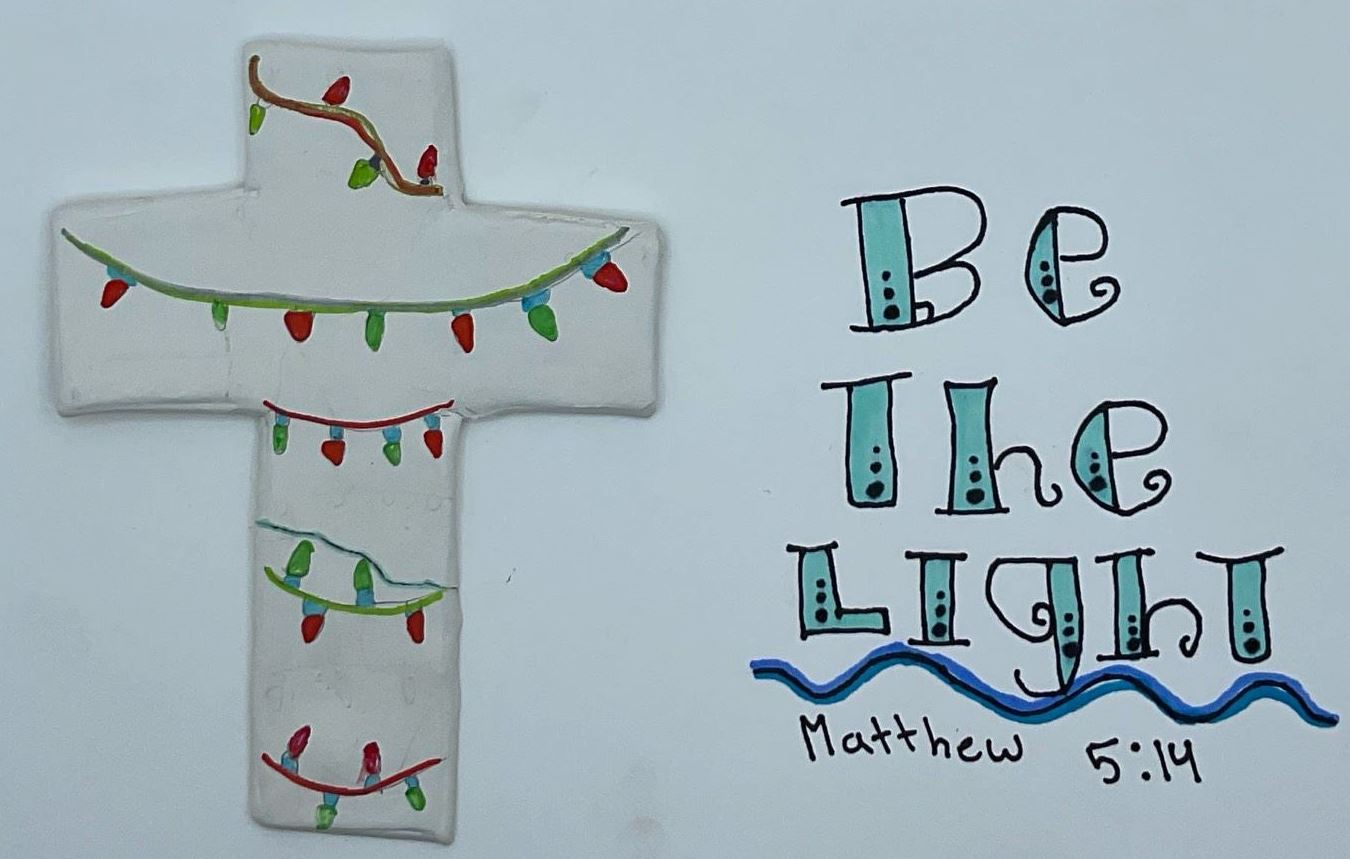 Be
The
LIghT
Matthew 5:14